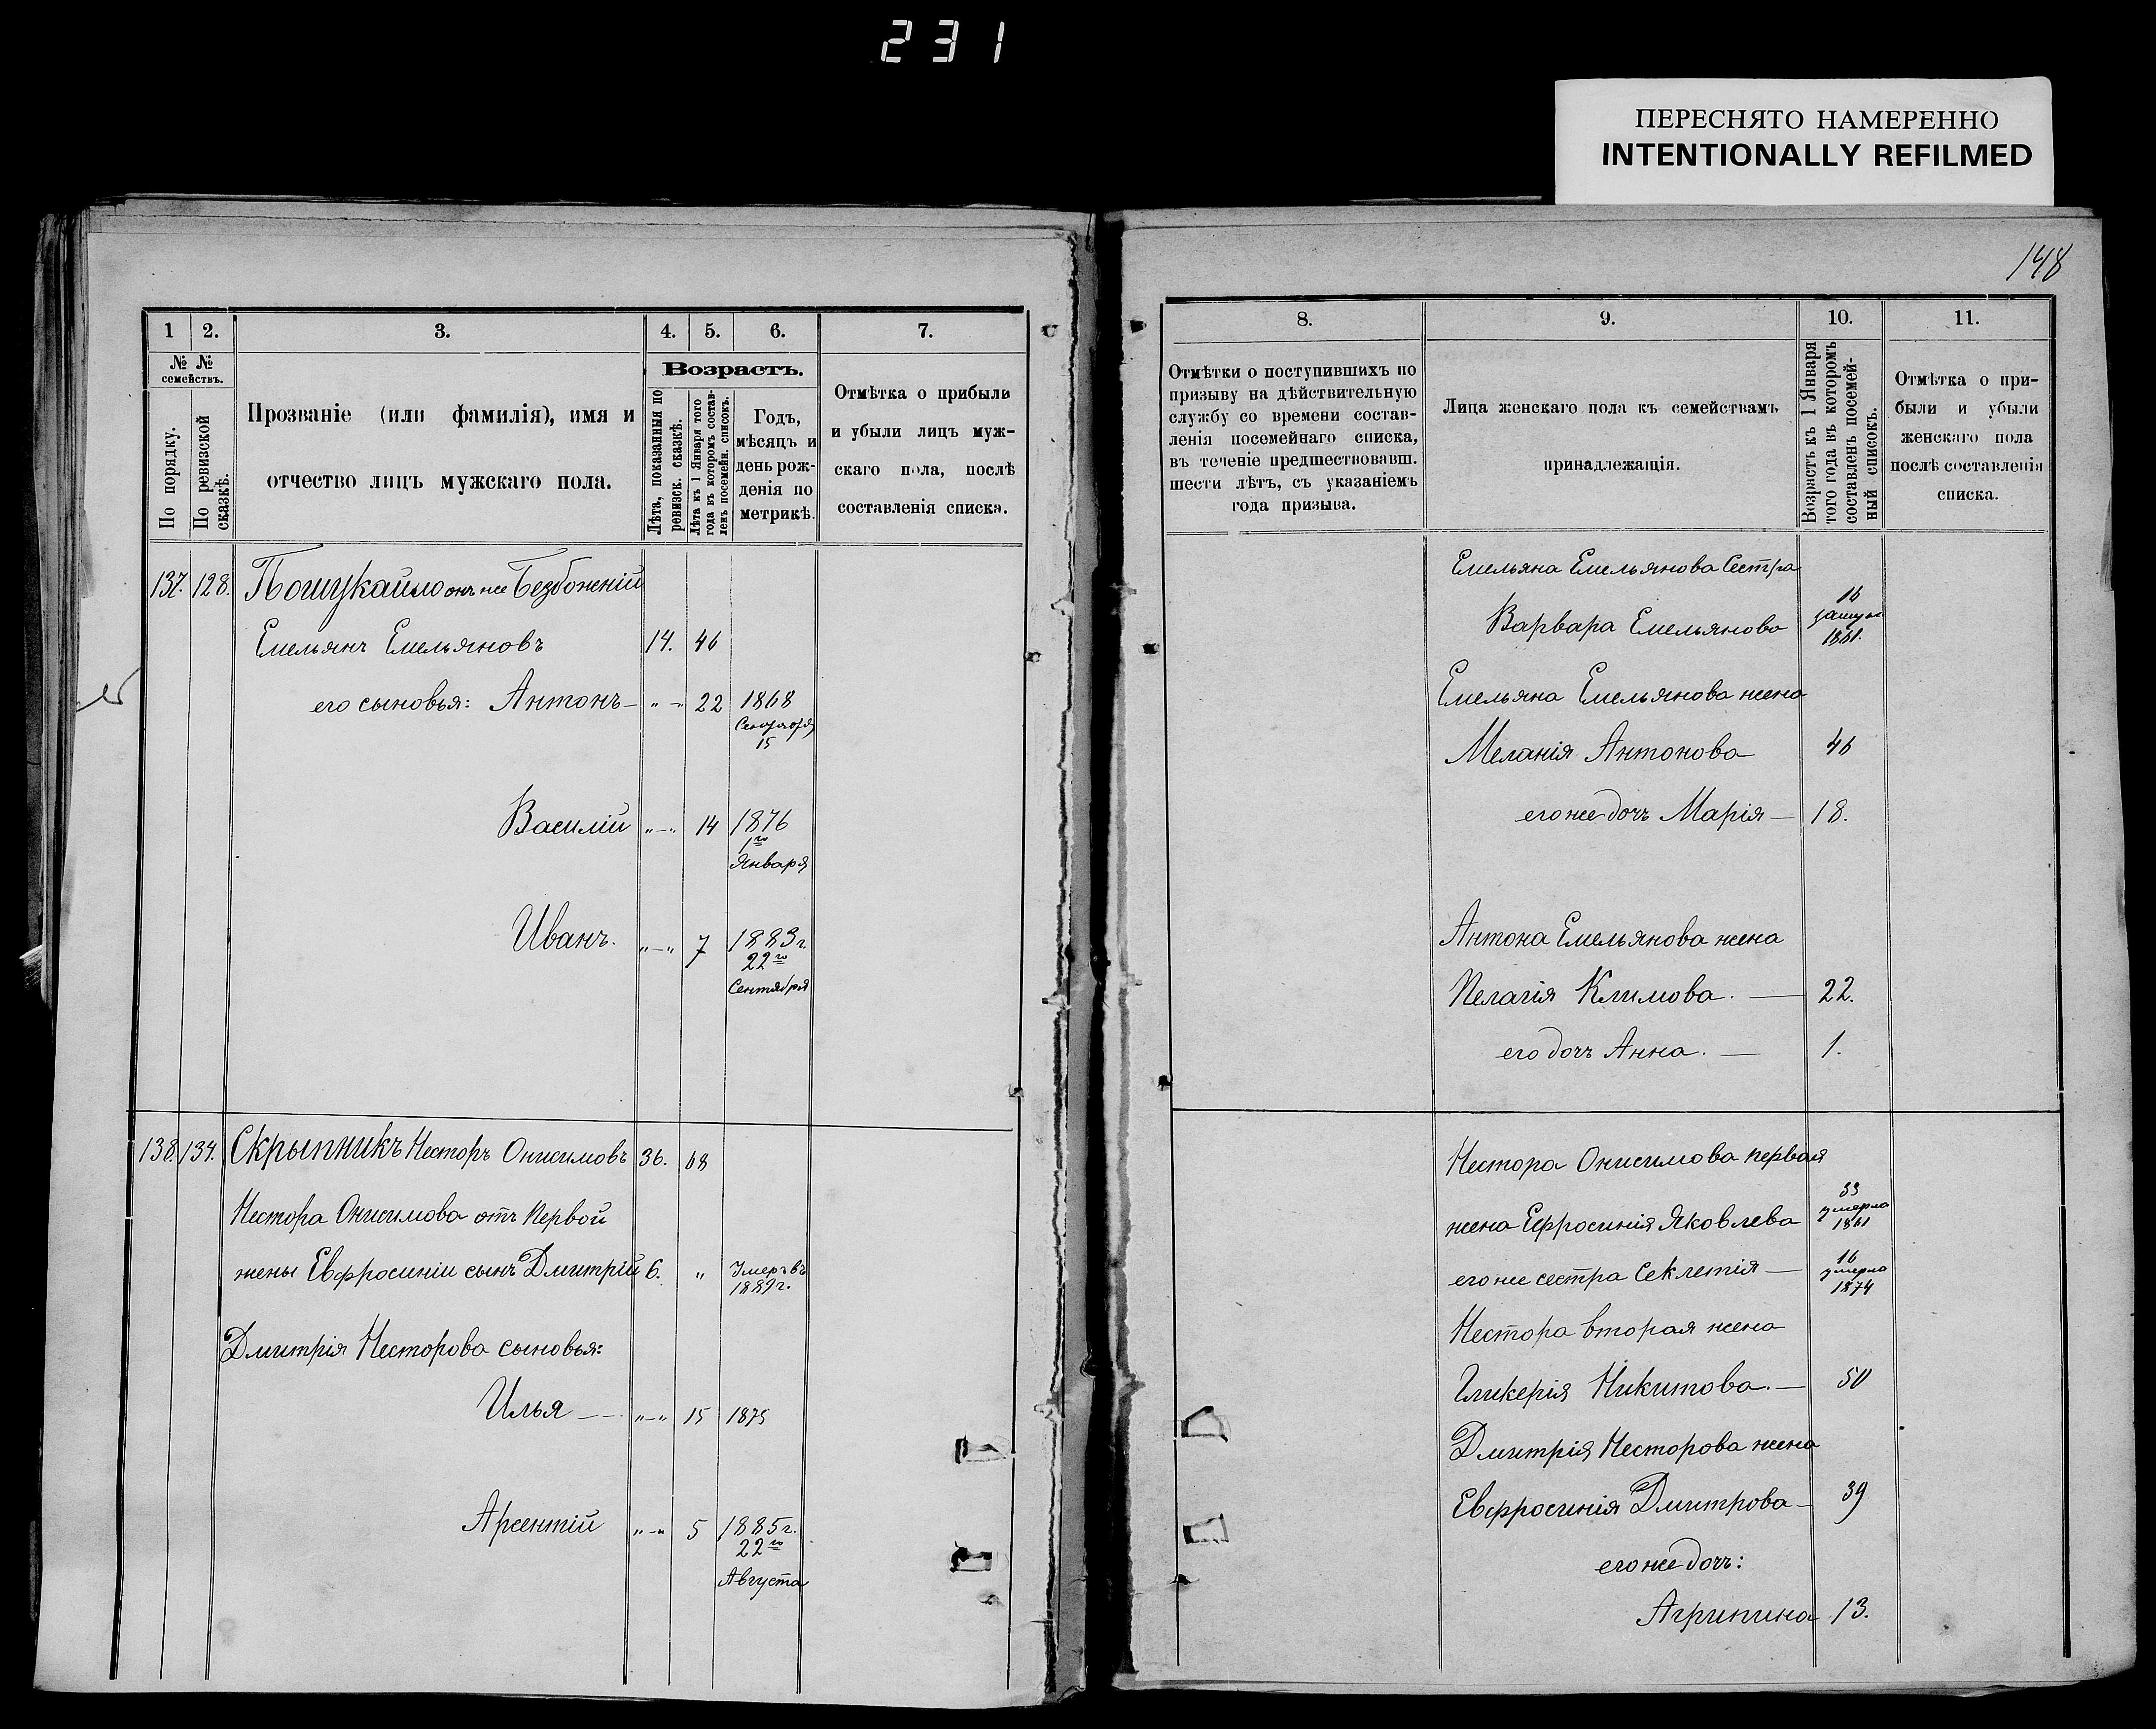 231
ПЕРЕСНЯТО НАМЕРЕННО
INTENTIONALLY REFILMED
148
1 2. 3. 4. 5. 6. 7.
№ № семействъ.
По порядку.
По ревизской сказкѣ.
Прозваніе (или фамилія), имя и
отчество лицъ мужскаго пола.
Возрастъ.
Лѣта, показанныя по
ревизск. сказкѣ.
Лѣта къ 1 Января того
года въ которомъ состав-
ленъ посемейн. списокъ.
Годъ,
мѣсяцъ и
день рож-
денія по
метрикѣ.
Отмѣтка о прибыли
и убыли лицъ муж-
скаго пола, послѣ
составленія списка.
137. 128. Пошукайло онъ же Безбожній
Емельянъ Емельяновъ 14. 46
его сыновья: Антонъ — „ — 22 1868
15
Василій „—„ 14 1876
1го
Января
Иванъ. „—„ 7 1883 г
22го
Сентября
138. 134. Скрыпникъ Несторъ Онисимовъ 36. 68
Нестора Онисимова отъ первой
жены Евфросиніи сынъ Дмитрій 6. „ Умеръ въ
1889 г.
Дмитрія Несторова сыновья:
Илья — „—„ 15 1875
Арсентій „—„ 5 1885 г.
22го
Августа
8. 9. 10. 11.
Отмѣтки о поступившихъ по
призыву на дѣйствительную
службу со времени состав-
ленія посемейнаго списка,
въ теченіе предшествовавш.
шести лѣтъ, съ указаніемъ
года призыва.
Лица женскаго пола къ семействамъ
принадлежащія.
Возрастъ къ 1 Января
того года въ которомъ
составленъ посемей-
ный списокъ.
Отмѣтка о при-
были и убыли
женскаго пола
послѣ составленія
списка.
Емельяна Емельянова Сестра
Варвара Емельянова 16
1861.
Емельяна Емельянова жена
Меланія Антонова 46
его же дочь Марія — 18.
Антона Емельянова жена
Пелагія Климова. — 22.
его дочь Анна. — 1.
Нестора Онисимова первая
жена Ефросинія Яковлева 33
умерла
1861
его же сестра Секлетія — 16
умерла
1874
Нестора вторая жена
Гликерія Никитова. — 50
Дмитрія Несторова жена
Евфросинія Дмитрова — 39
его же дочь:
Агрипина 13.